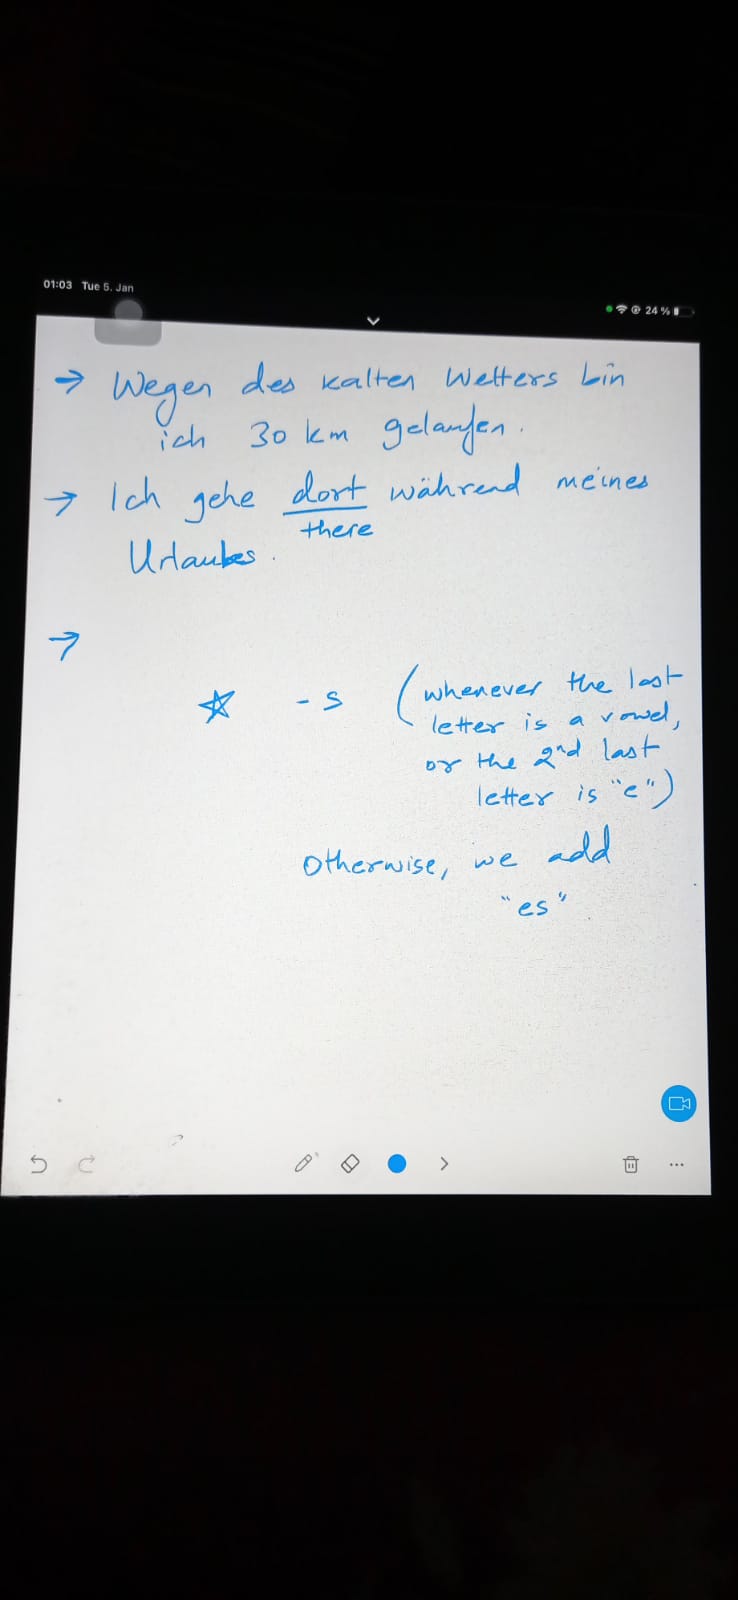 01:03 Tue 5. Jan
24 %
→ Wegen des kalten Wetters bin
ich 30 km gelaufen.
→ Ich gehe dort während meines
there
Urlaubes.
→
☆ - s (whenever the last
letter is a vowel,
or the 2nd last
letter is "e")
Otherwise, we add
"es"